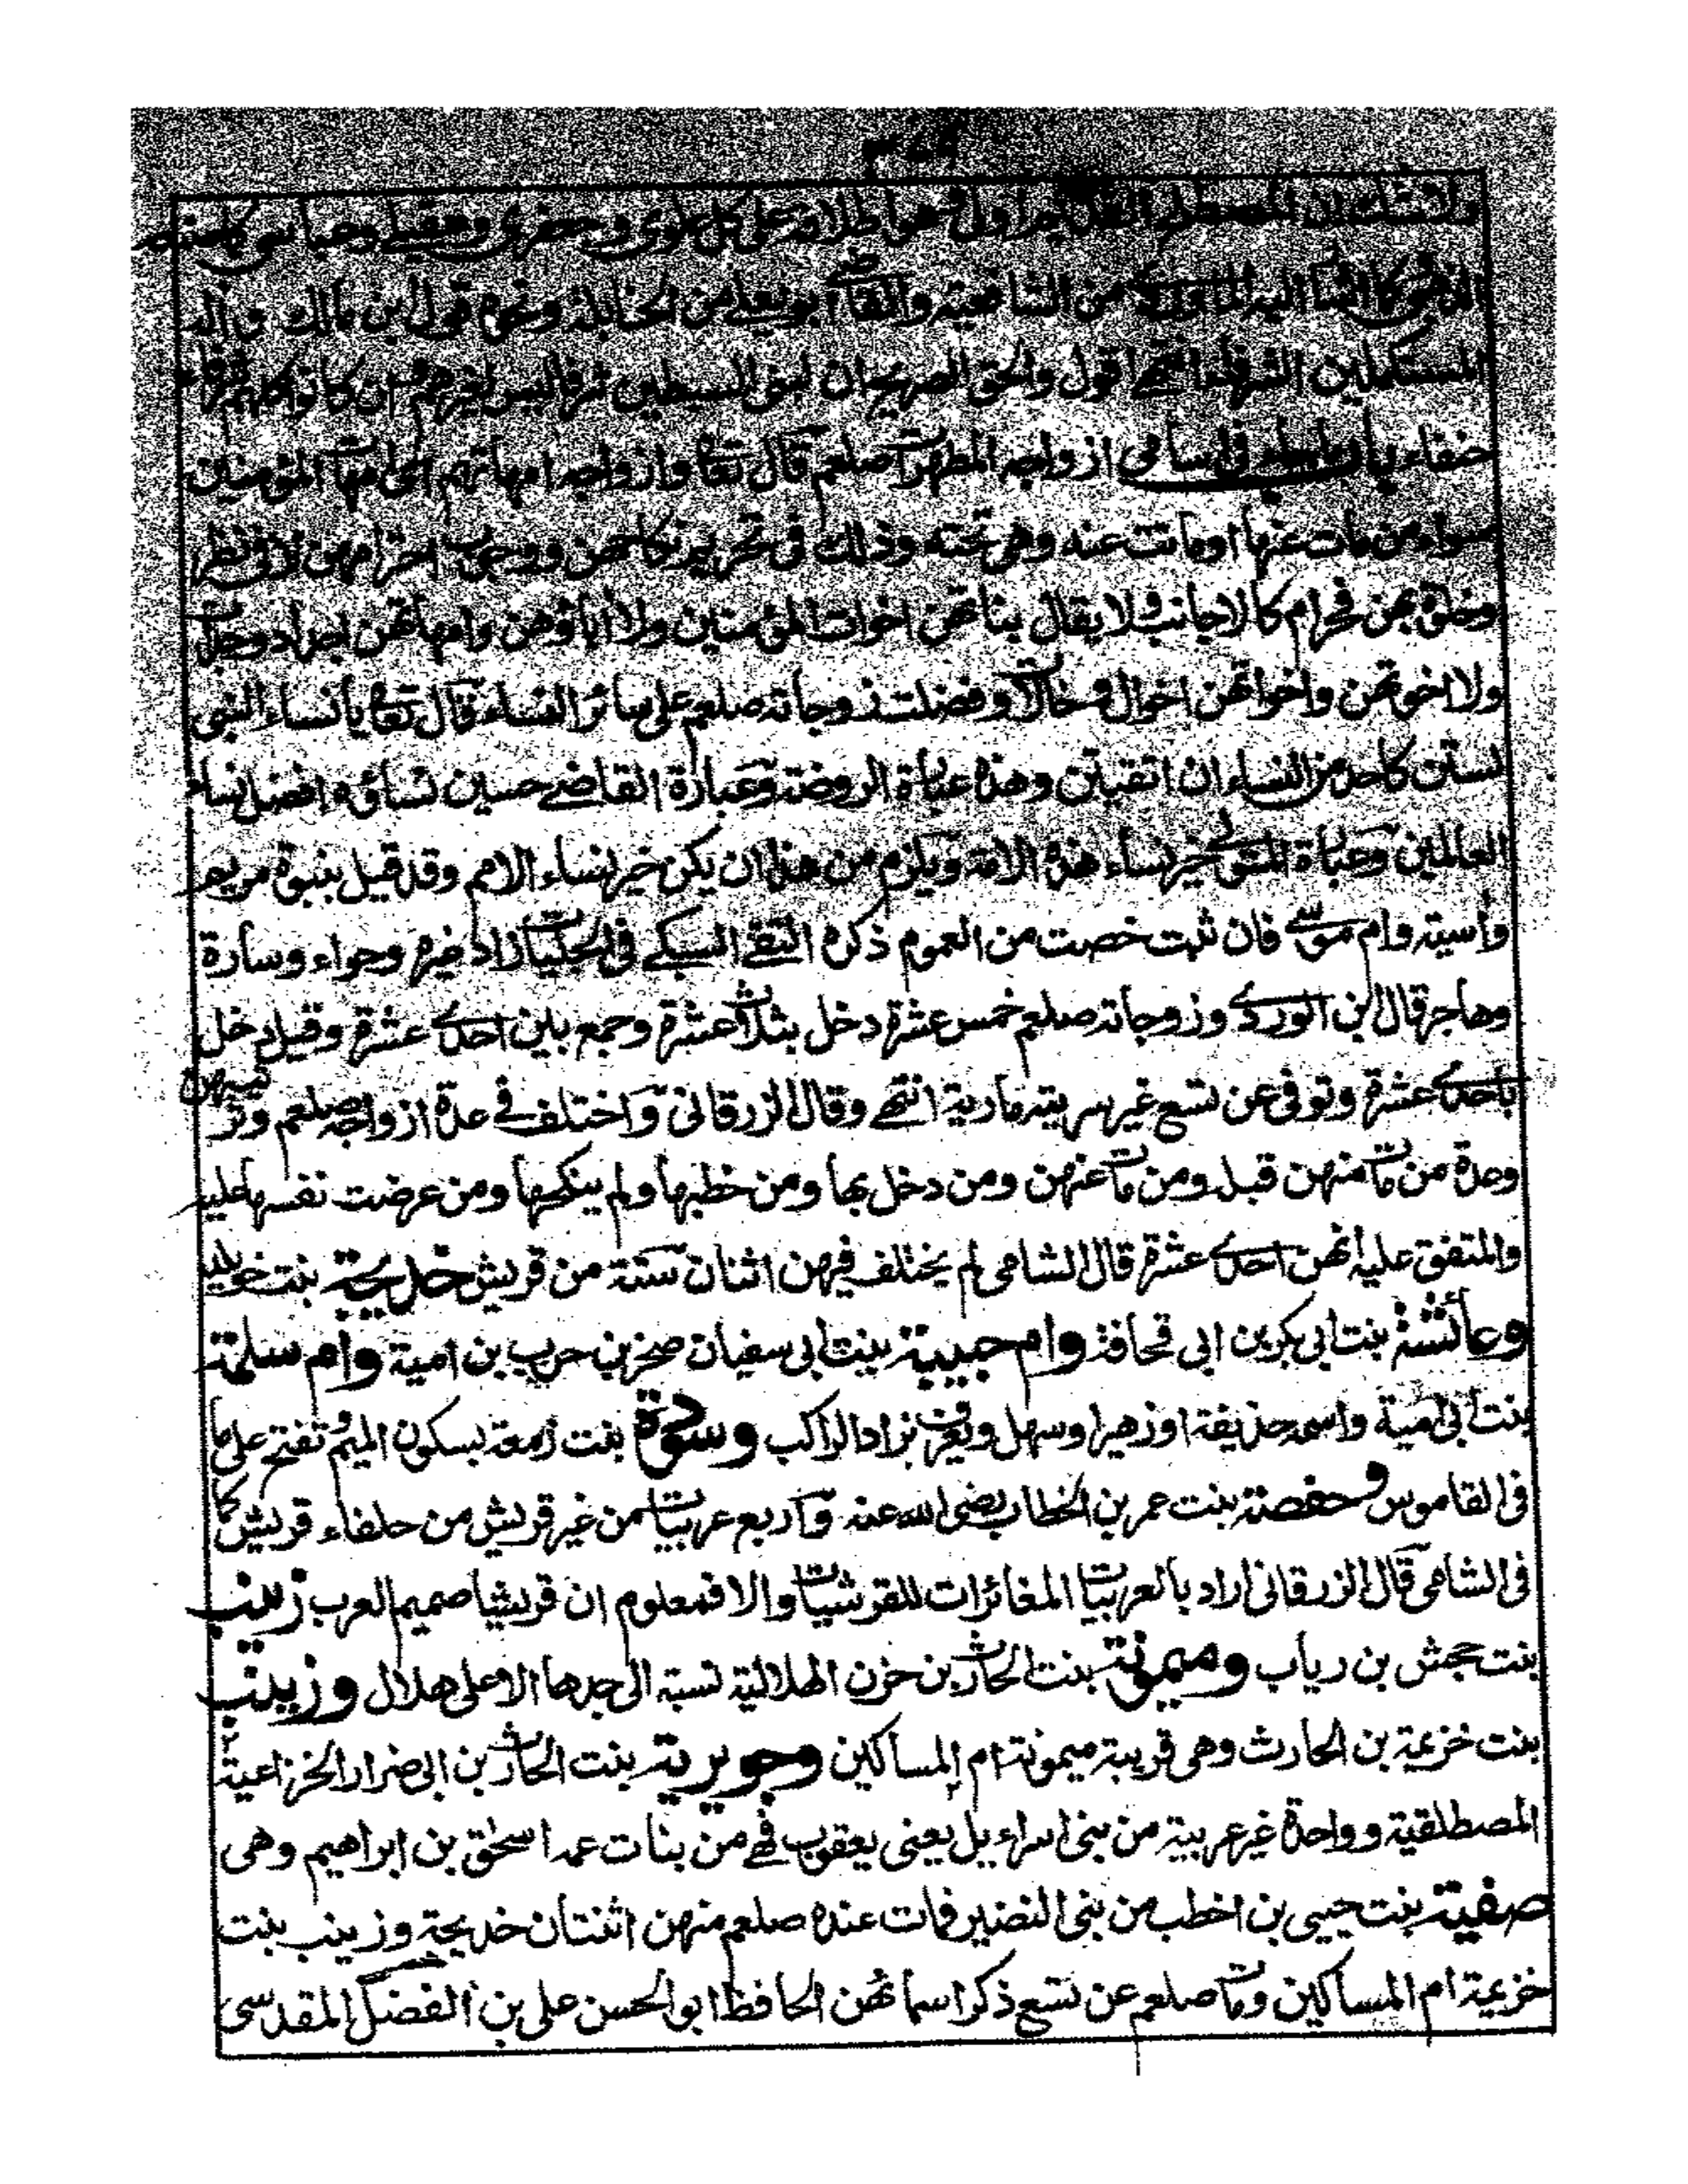 ولا شك ان المصطلح القديم اولى وهو اطلاقه على كل علوى وجعفرى وعقيلى وعباسى كما صنعه
الذهبى كما اشار اليه الماوردى من الشافعية والقاضى ابو يعلى من الحنابلة ونحوه قول ابن مالك واله
المستكملين الشرفا انتهى اقول والحق الصريح ان لبنى السبطين شرفا ليس لغيرهم وان كانوا كلهم شرفاء
خفاء باب فى اسامى ازواجه المطهرات صلعم قال تعا وازواجه امهاتهم اى امهات المؤمنين
سواء من مات عنها او ماتت عنه وهى تحته وذلك فى تحريم نكاحهن ووجوب احترامهن لا فى نظر
وخلوة بهن فحرام كالاجانب ولا يقال بناتهن اخوات المؤمنين ولا اباؤهن وامهاتهن اجداد وجدات
ولا اخوتهن واخواتهن اخوال وخالات وفضلت زوجاته صلعم على سائر النساء قال تعا يا نساء النبى
لستن كاحد من النساء ان اتقيتن وهذه عبارة الروضة وعبارة القاضى حسين نساؤه افضل نساء
العالمين وعبارة المتولى خير نساء هذه الامة ويلزم من هذا ان يكن خير نساء الامم وقد قيل بنبوة مريم
وأسية وام موسى فان ثبت خصت من العموم ذكره التقى السبكى فى الحلبيات زاد غيره وحواء وسارة
وهاجر قال ابن الوردى وزوجاته صلعم خمس عشرة دخل بثلاث عشرة وجمع بين احدى عشرة وقيل دخل
باحدى عشرة وتوفى عن تسع غير سريته مارية انتهى وقال الزرقانى واختلف فى عدة ازواجه صلعم وترتيبهن
وعدة من مات منهن قبله ومن مات عنهن ومن دخل بها ومن خطبها ولم ينكحها ومن عرضت نفسها عليه
والمتفق عليه انهن احدى عشرة قال الشامى لم يختلف فيهن اثنان ستة من قريش خديجة بنت خويلد
وعائشة بنت ابى بكر بن ابى قحافة وام حبيبة بنت ابى سفيان صخر بن حرب بن امية وام سلمة
بنت ابى امية واسمه حذيفة او زهير او سهل ويعرف بزاد الراكب وسودة بنت زمعة بسكون الميم وتفتح على ما
فى القاموس وحفصة بنت عمر بن الخطاب رضى الله عنه واربع عربيات من غير قريش من حلفاء قريش كما
فى الشامى قال الزرقانى اراد بالعربيات المغائرات للقرشيات والا فمعلوم ان قريشا صميم العرب زينب
بنت جحش بن رياب وميمونة بنت الحارث بن حزن الهلالية نسبة الى جدها الاعلى هلال وزينب
بنت خزيمة بن الحارث وهى قريبة ميمونة ام المساكين وجويرية بنت الحارث بن ابى ضرار الخزاعية
المصطلقية وواحدة غير عربية من بنى اسراءيل يعنى يعقوب فهى من بنات عمه اسحق بن ابراهيم وهى
صفية بنت حيى بن اخطب من بنى النضير فمات عنده صلعم منهن اثنتان خديجة وزينب بنت
خزيمة ام المساكين ومات صلعم عن تسع ذكر اسمائهن الحافظ ابو الحسن على بن الفضل المقدسى